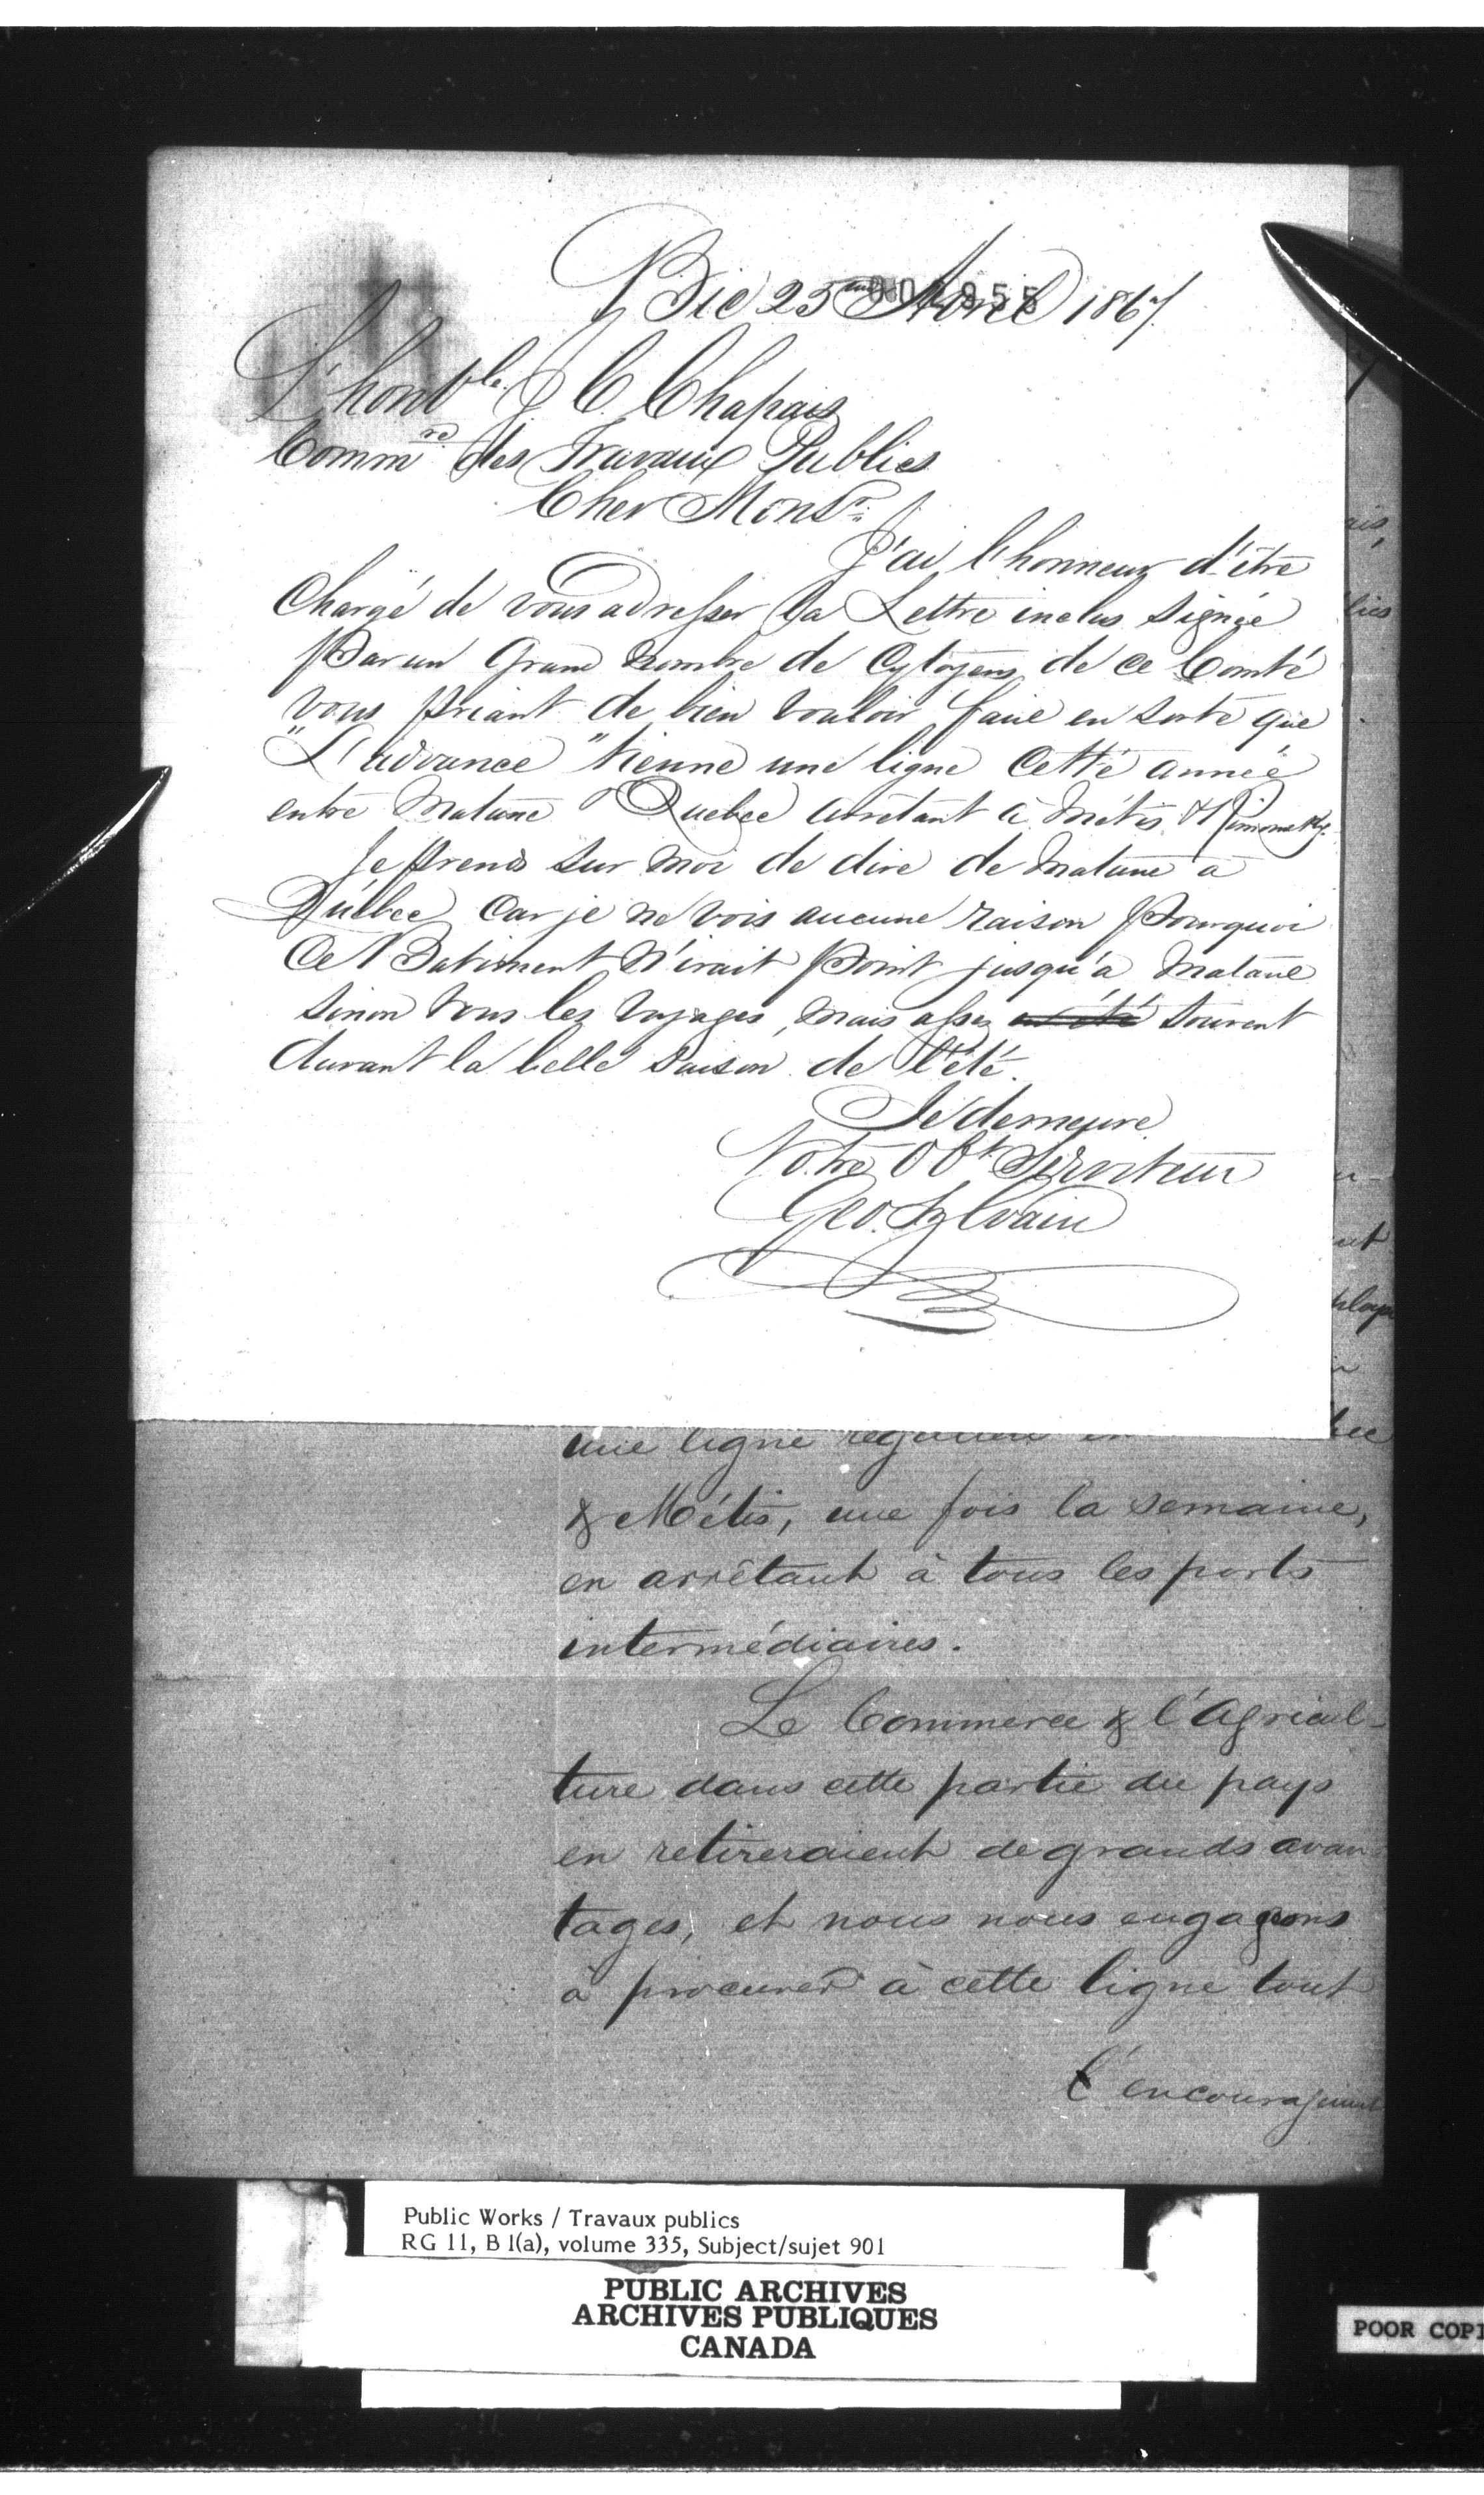 Bic 23 Avril 1867
L'honble. J C Chapais
Commre des Travaux Publics
Cher Monsr.
J'ai l'honneur d'être
Chargé de vous adresser la Lettre inclus Signée
Par un Grand nombre de Cytoyens de ce Comté
vous priant de bien vouloir faire en sorte que
"L'advance" tienne une ligne Cette année
entre Matane & Quebec arrêtant à Métis & Rimousky.
Je prends sur moi de dire de Matane à
Québec Car je ne vois aucune raison Pourquoi
Ce Batiment N'irait Point jusqu'à Matane
sinon tous les voyages, mais assez en été souvent
durant la belle saison de l'été.
Je demeure
Votre Obt Serviteur
Geo. Sylvain
ais,
lics
ut
ploye
une ligne bec
& Métis, une fois la semaine,
en arrêtant à tous les ports
intermédiaires.
Le Commerce & l'Agricul-
ture dans cette partie du pays
en retireraient de grands avan
tages, et nous nous engageons
à procurer à cette ligne tout
l'encouragement
Public Works / Travaux publics
RG 11, B 1(a), volume 335, Subject/sujet 901
PUBLIC ARCHIVES
ARCHIVES PUBLIQUES
CANADA
POOR COPI